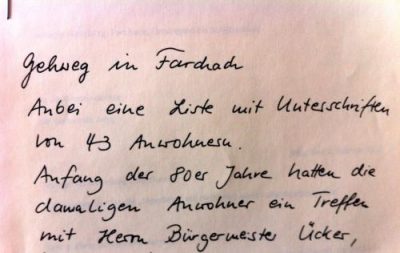 Gehweg in Farchach
Anbei eine Liste mit Unterschriften
von 43 Anwohnern.
Anfang der 80er Jahre hatten die
damaligen Anwohner ein Treffen
mit Herrn Bürgermeister Ücker,